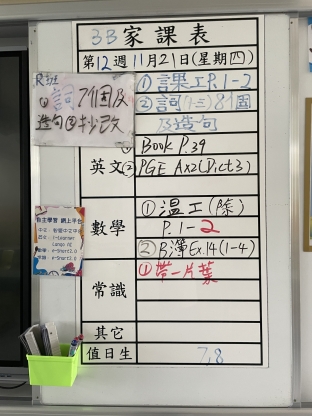 3B 家課表
第12週 11月21日(星期四)
R班
①詞7個及
造句②抄改
①課工P.1-2
②詞(十三)8個
及造句
英文
①Book P.39
②PGE Ax2(Dict3)
數學
①溫工(除)
P.1-2
②B簿Ex.14(1-4)
常識
①帶一片葉
其它
值日生
7,8
自主學習 網上平台